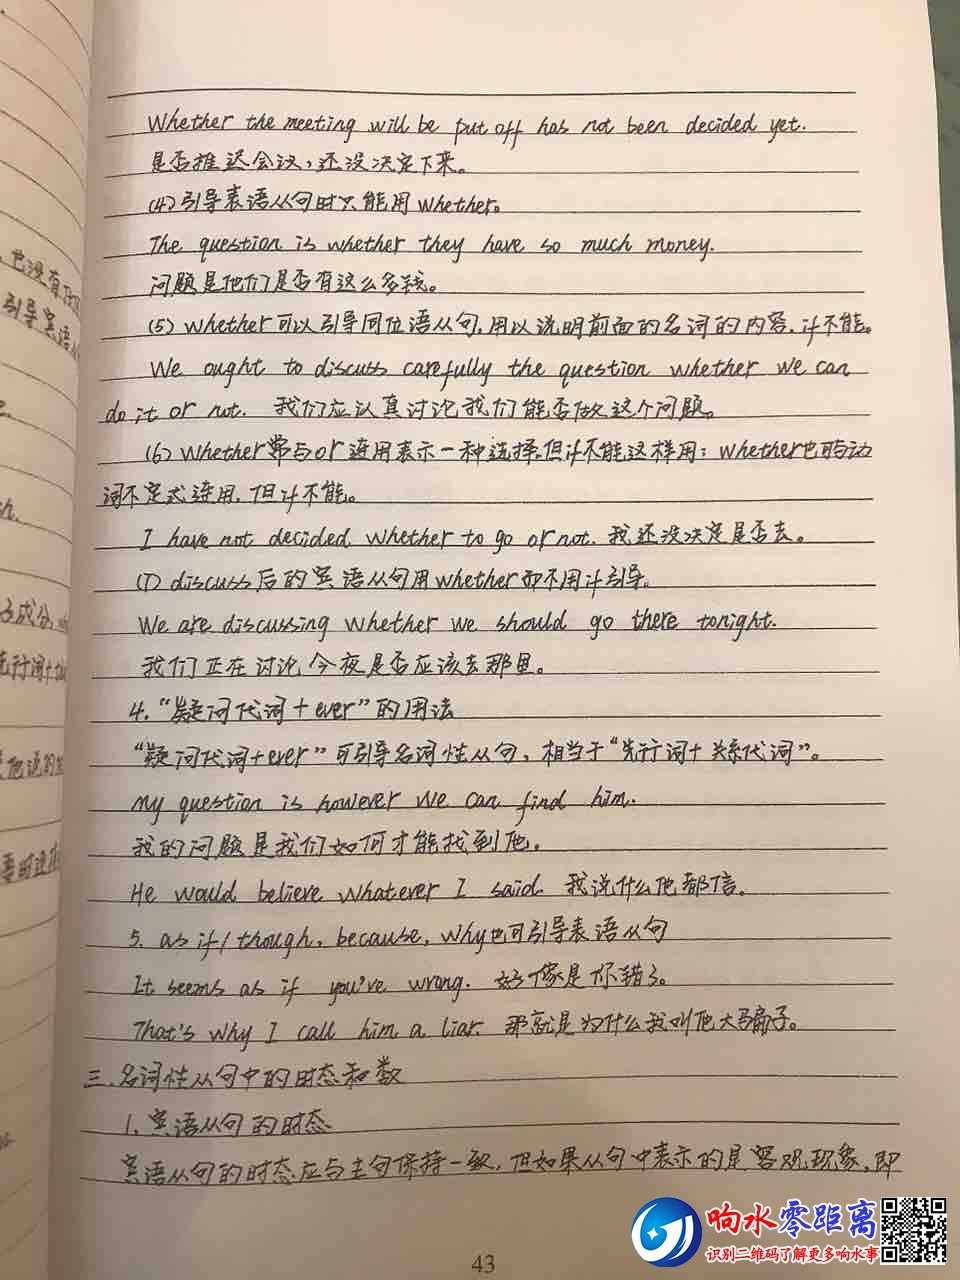 Whether the meeting will be put off has not been decided yet.
是否推迟会议，还没决定下来。
(4)引导表语从句时只能用whether。
The question is whether they have so much money.
问题是他们是否有这么多钱。
(5) whether可以引导同位语从句，用以说明前面的名词的内容，if不能。
We ought to discuss carefully the question whether we can
do it or not. 我们应认真讨论我们能否做这个问题。
(6) whether常与or连用表示一种选择，但if不能这样用；whether也可与动
词不定式连用，但if不能。
I have not decided whether to go or not. 我还没决定是否去。
(7) discuss后的宾语从句用whether而不用if引导。
We are discussing whether we should go there tonight.
我们正在讨论今夜是否应该去那里。
4.“疑问代词＋ever”的用法
“疑问代词＋ever”可引导名词性从句，相当于“先行词＋关系代词”。
My question is however we can find him.
我的问题是我们如何才能找到他。
He would believe whatever I said. 我说什么他都信。
5. as if/though, because, why也可引导表语从句
It seems as if you're wrong. 好像是你错了。
That's why I call him a liar. 那就是为什么我叫他大骗子。
三.名词性从句中的时态和数
1.宾语从句的时态
宾语从句的时态应与主句保持一致，但如果从句中表示的是客观现象，即
43
响水零距离
识别二维码了解更多响水事